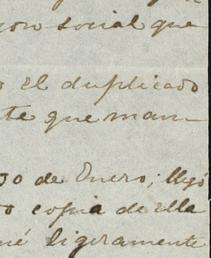 cion social que
o el duplicado
te que man
30 de Enero; llegó
to copia de ella
né ligeramente